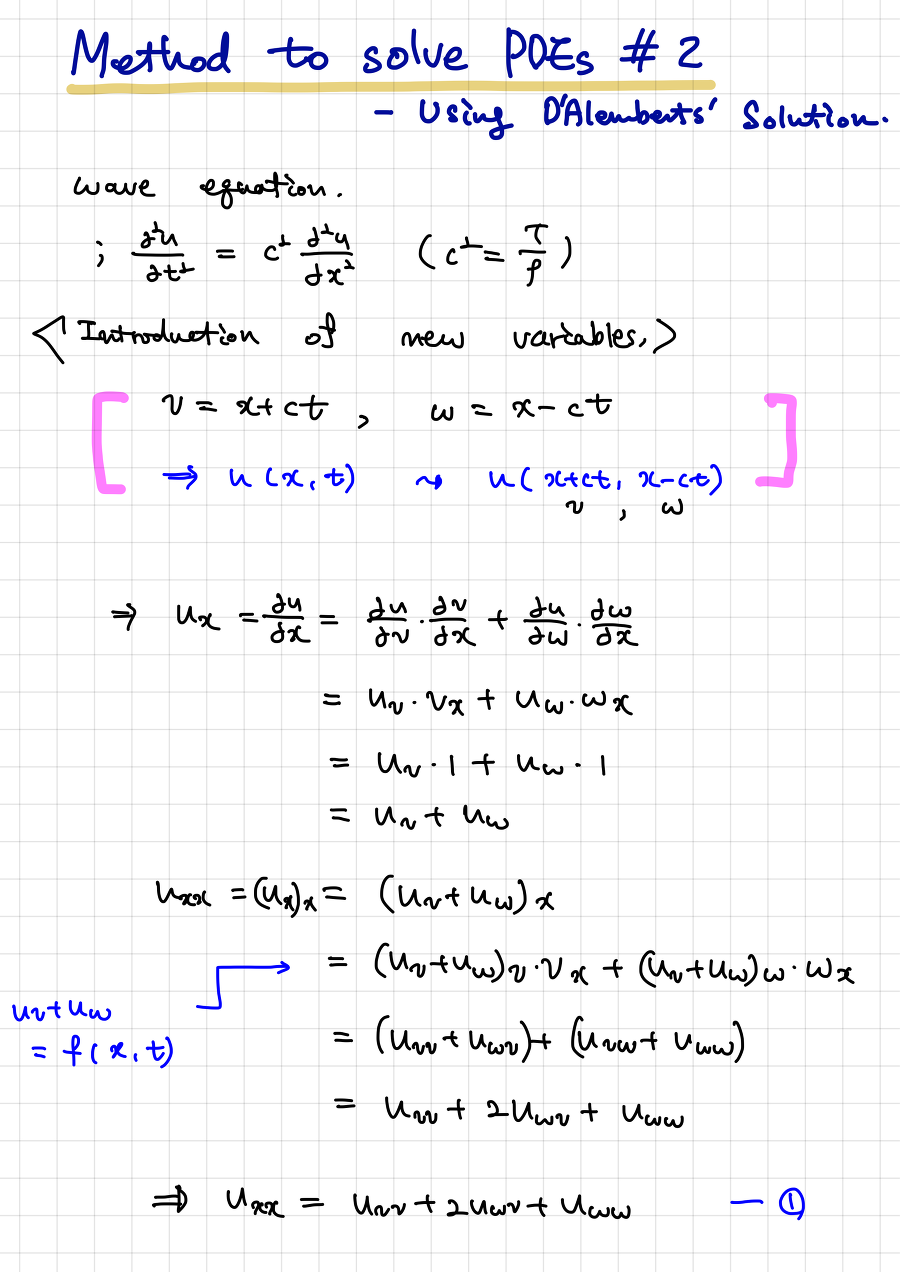 Method to solve PDEs #2
- Using D'Alemberts' Solution.
wave equation.
; ∂²u/∂t² = c² ∂²u/∂x² (c² = T/ρ)
<Introduction of new variables.>
v = x+ct , w = x-ct
⇒ u(x,t) ⇝ u(x+ct, x-ct)
v , w
⇒ uₓ = ∂u/∂x = ∂u/∂v · ∂v/∂x + ∂u/∂w · ∂w/∂x
= u_v · v_x + u_w · w_x
= u_v · 1 + u_w · 1
= u_v + u_w
u_xx = (u_x)_x = (u_v + u_w)_x
= (u_v + u_w)_v · v_x + (u_v + u_w)_w · w_x
u_v + u_w
= f(x,t)
= (u_vv + u_wv) + (u_vw + u_ww)
= u_vv + 2u_wv + u_ww
⇒ u_xx = u_vv + 2u_wv + u_ww — ①